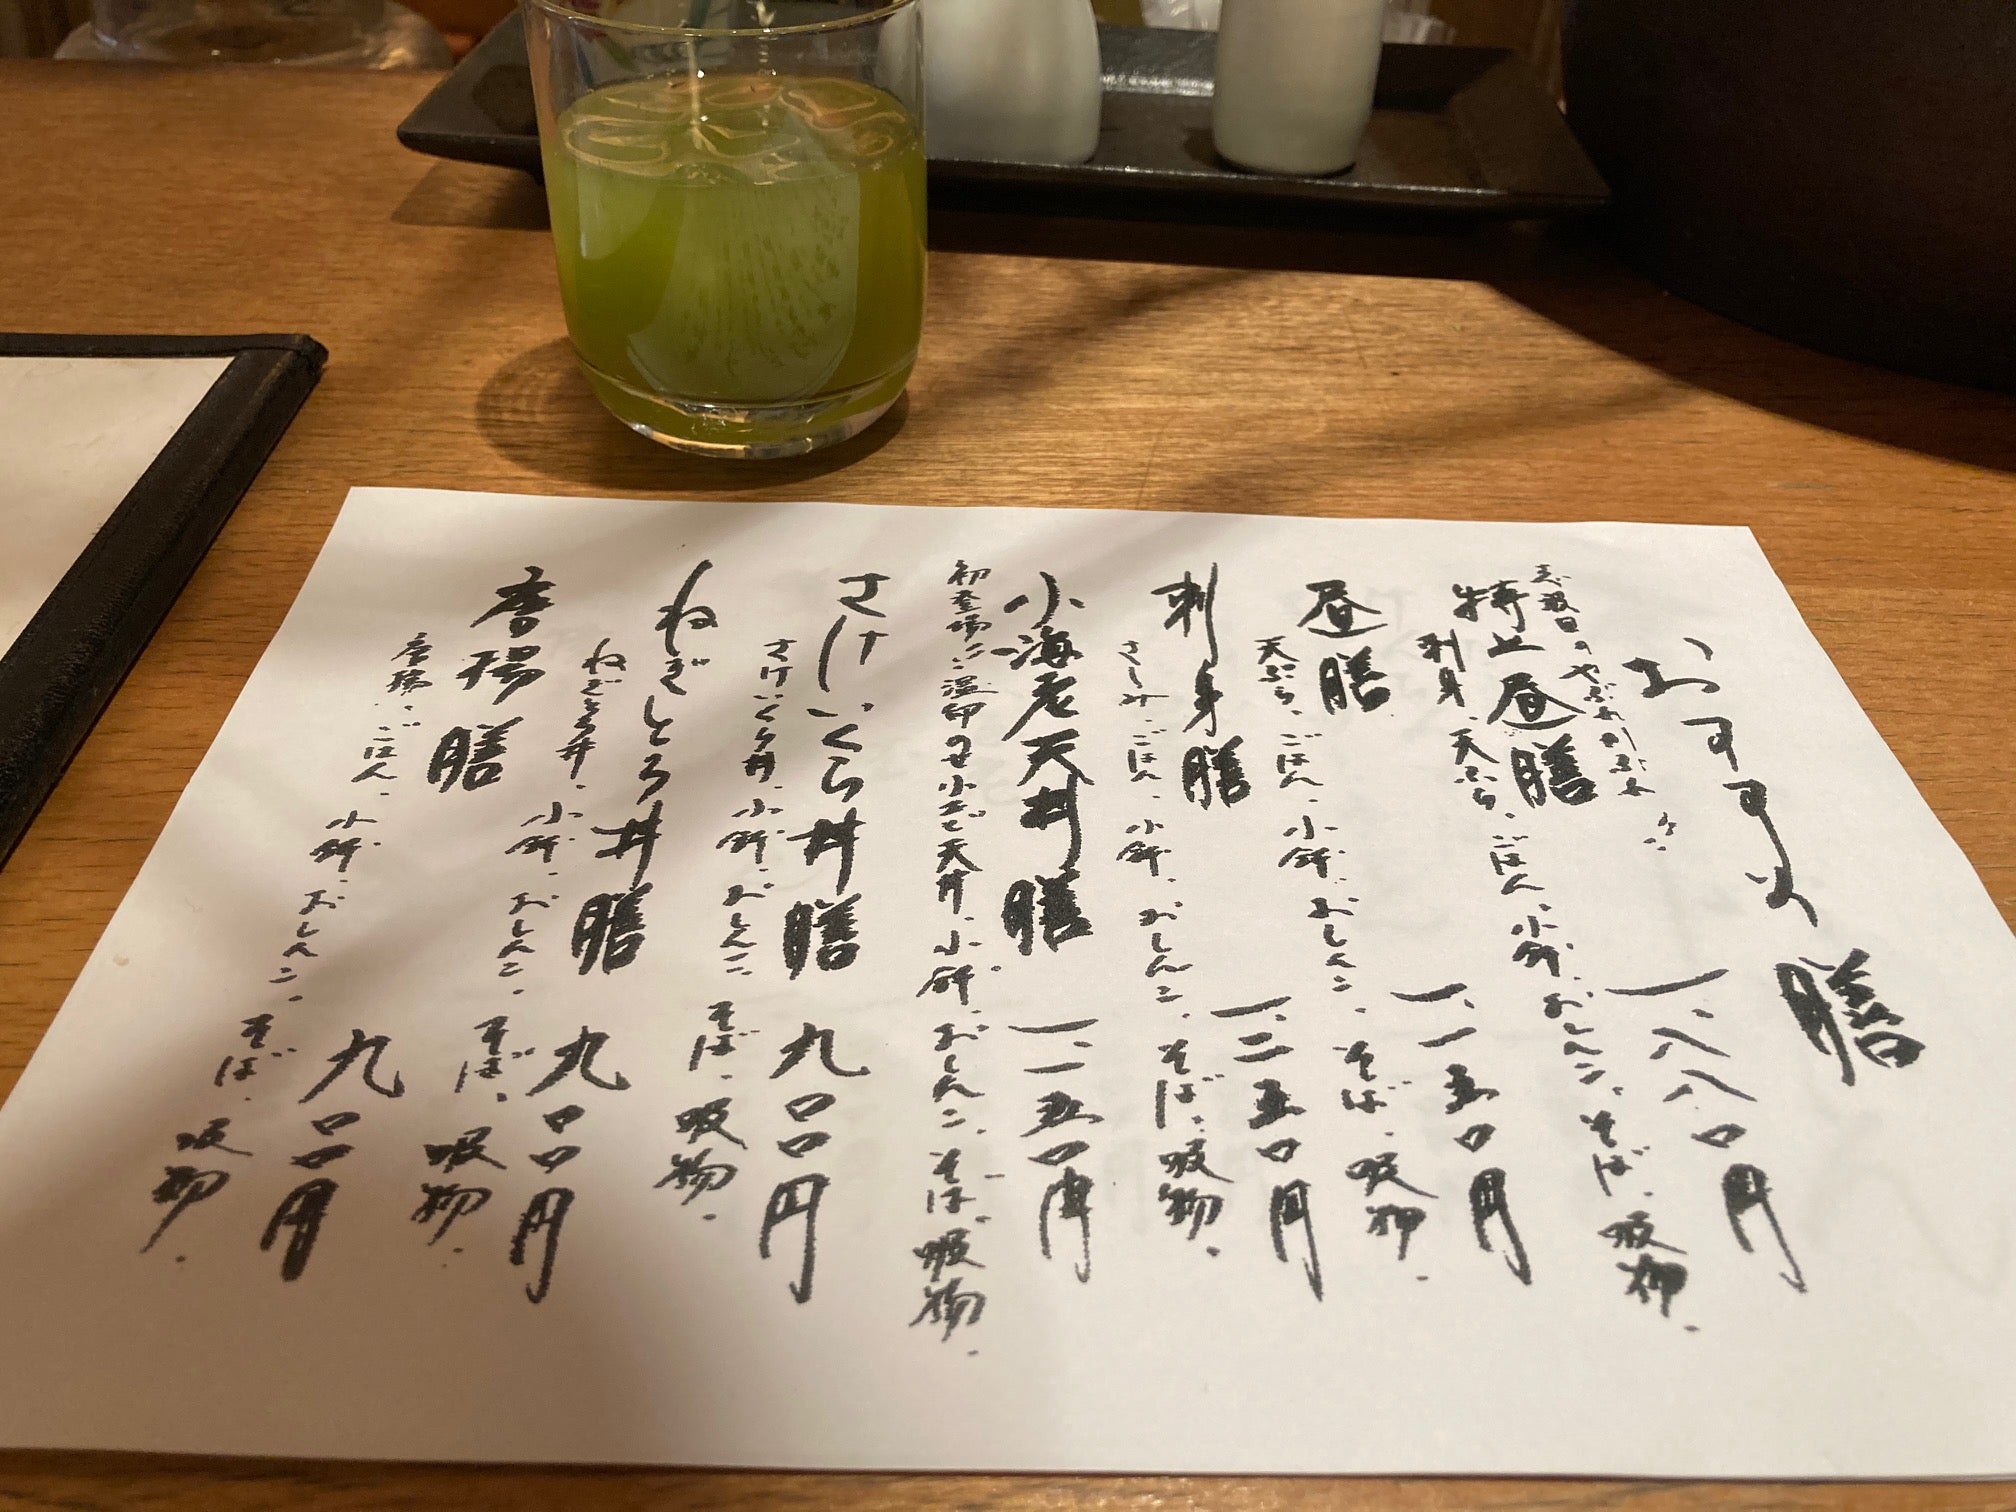 おすすめ膳
特上昼膳 一、八八〇円
刺身、天ぷら、ごはん、小鉢、おしんこ、そば、吸物.
昼膳 一、一五〇円
天ぷら、ごはん、小鉢、おしんこ、そば、吸物.
刺身膳 一、二五〇円
さしみ、ごはん、小鉢、おしんこ、そば、吸物.
小海老天丼膳 一、一五〇円
初登場!!温卵のせ小エビ天丼、小鉢、おしんこ、そば、吸物.
さけいくら丼膳 九〇〇円
さけいくら丼、小鉢、おしんこ、そば、吸物.
ねぎとろ丼膳 九〇〇円
ねぎとろ丼、小鉢、おしんこ、そば、吸物.
唐揚膳 九〇〇円
唐揚、ごはん、小鉢、おしんこ、そば、吸物.